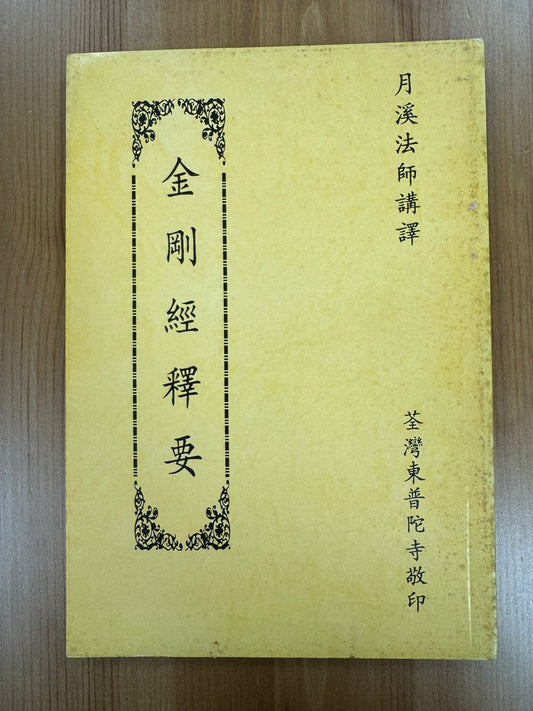 月溪法師講譯
金剛經釋要
荃灣東普陀寺敬印